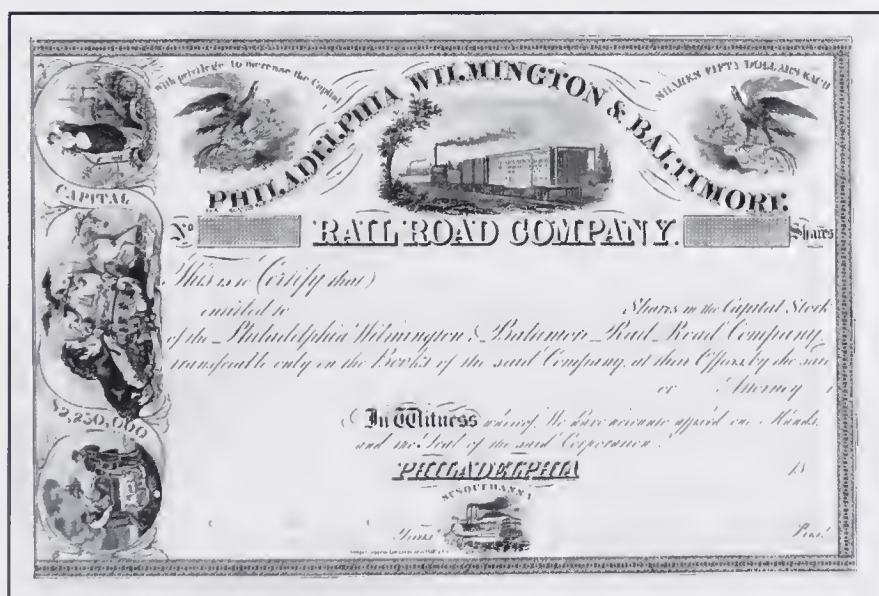 With privilege to increase the Capital
SHARES FIFTY DOLLARS EACH
PHILADELPHIA WILMINGTON & BALTIMORE
No RAIL ROAD COMPANY. Shares
CAPITAL
$2,250,000
This is to Certify that
entitled to Shares in the Capital Stock
of the Philadelphia Wilmington & Baltimore Rail Road Company
transferable only on the Books of the said Company, at their Office, by the said
or Attorney
In Witness whereof, We have hereunto affixed our Hands,
and the Seal of the said Corporation.
PHILADELPHIA 18
SUSQUEHANNA
Treasr. Presr.